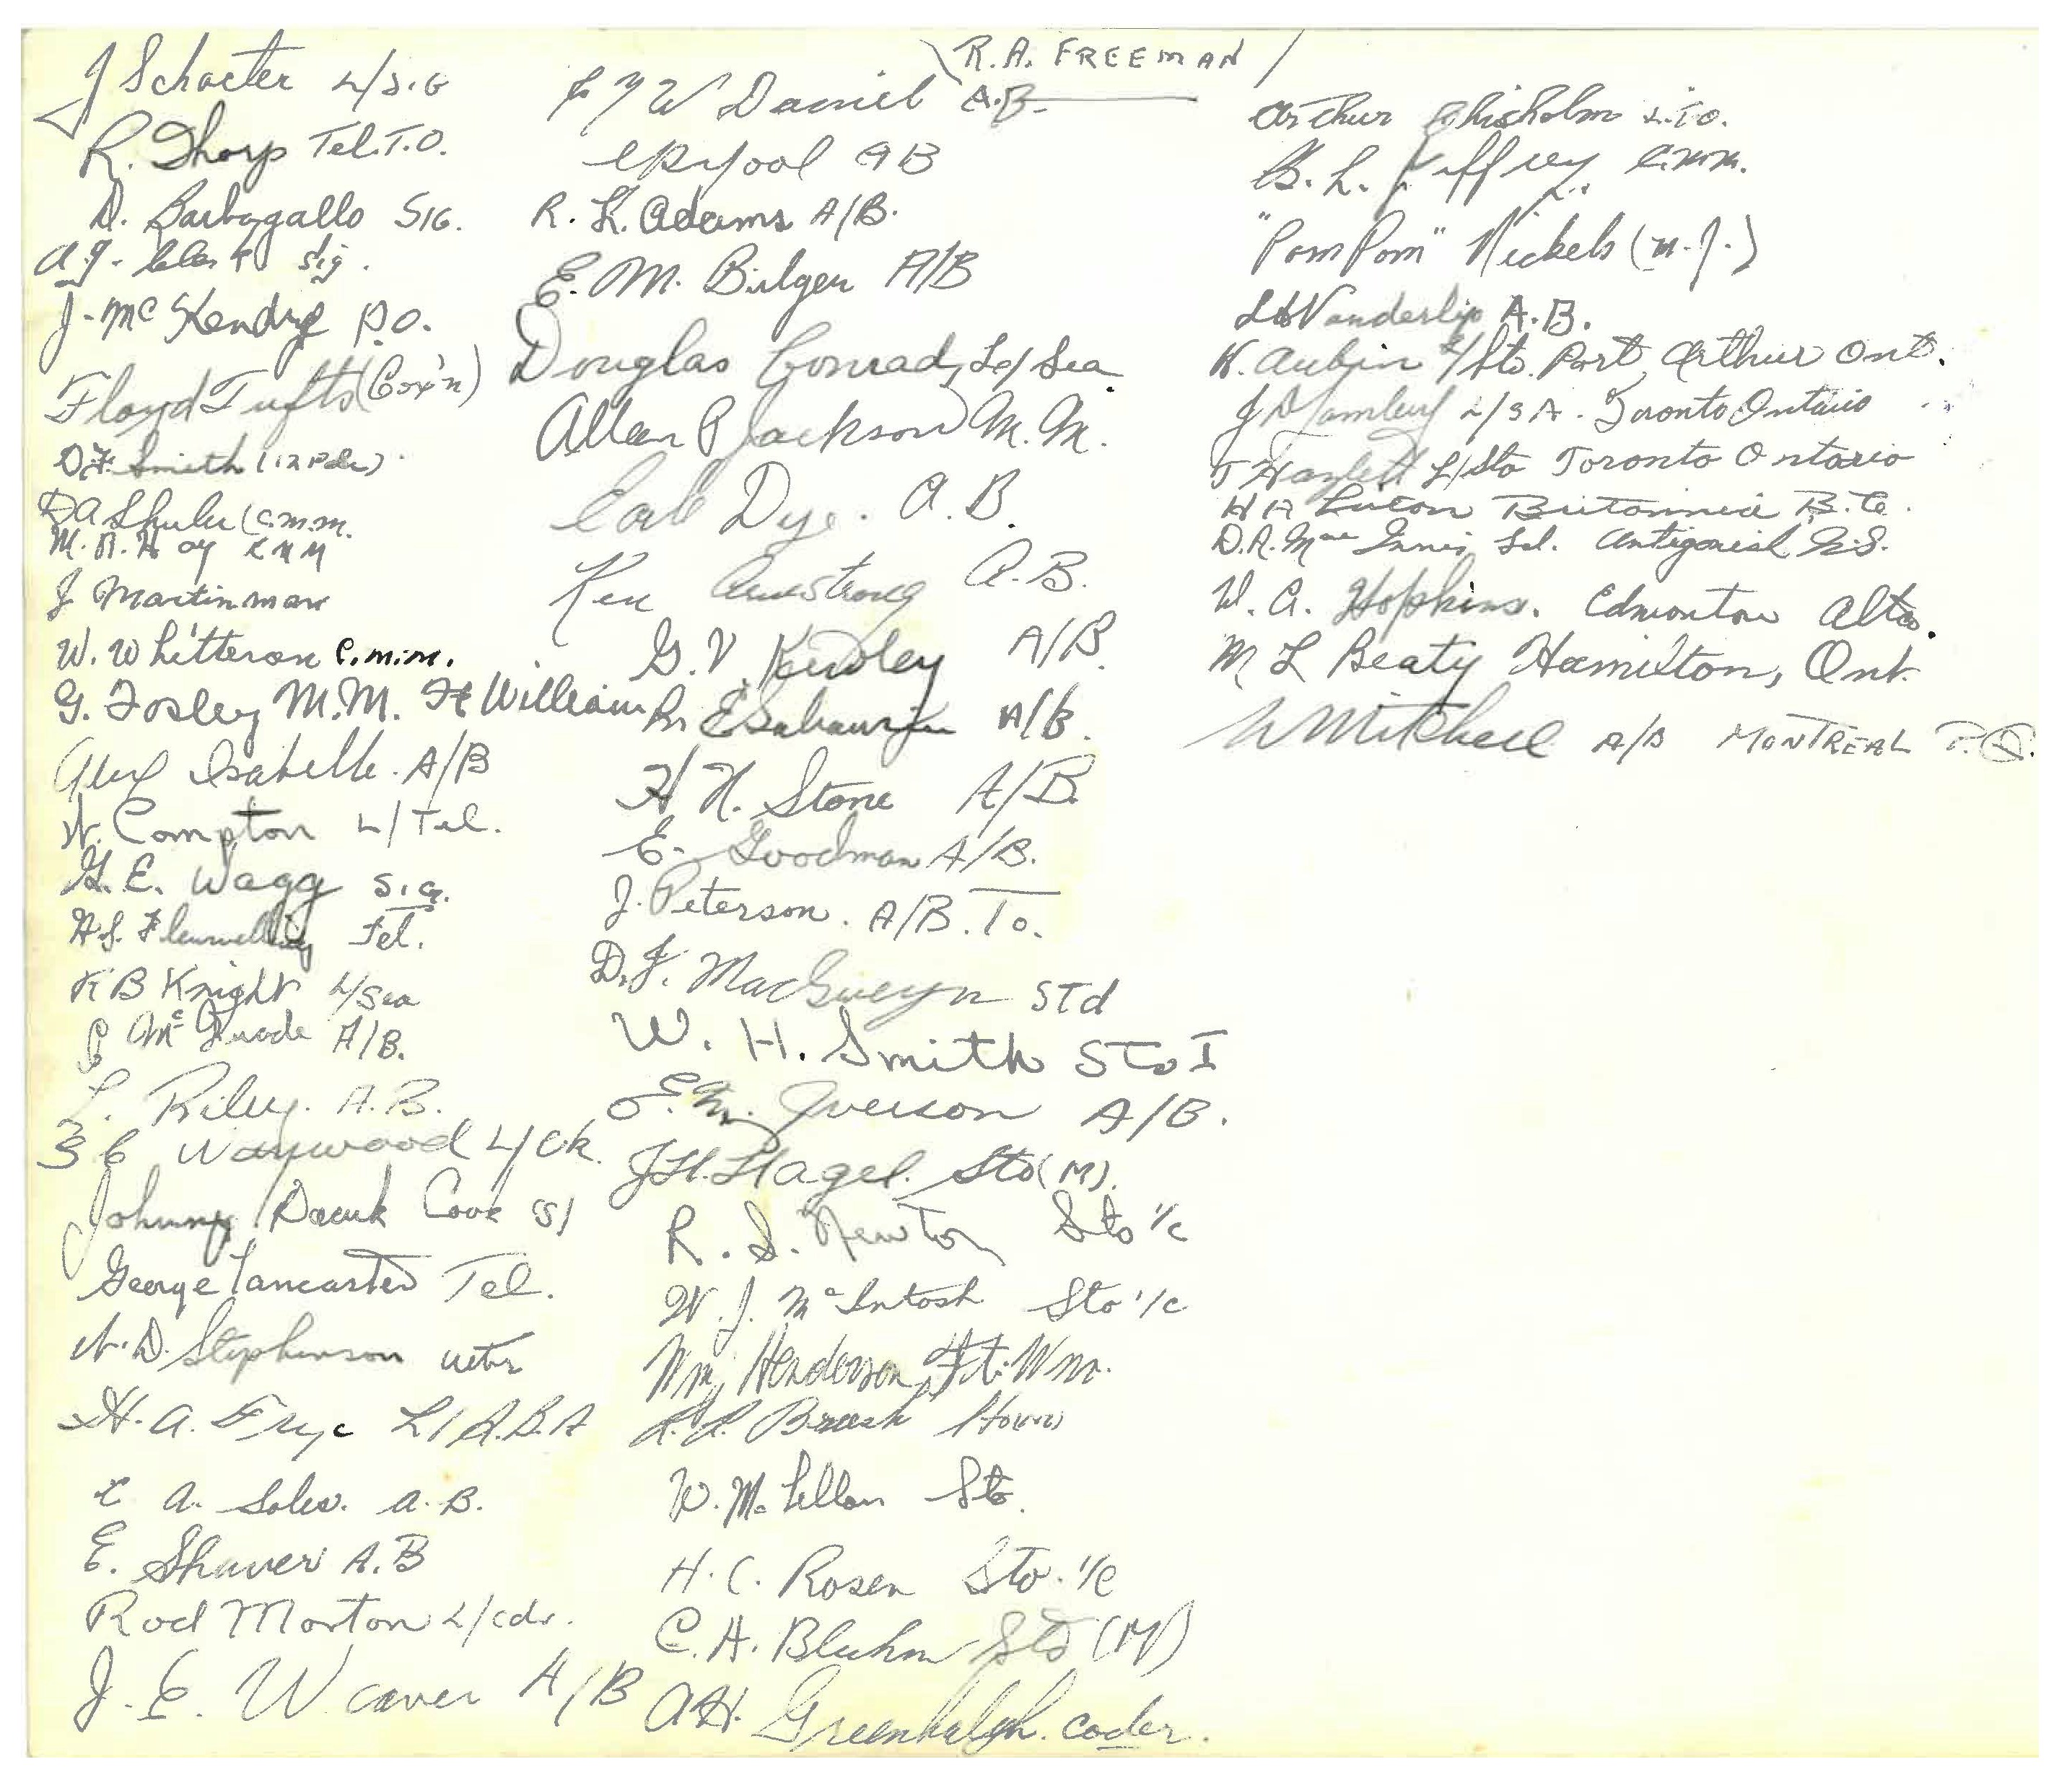 J Schacter L/SIG
R. Thorp Tel. T.O.
D. Barbagallo SIG.
A.J. Clark Sig.
J. Mc Kendry P.O.
Floyd Tufts (Cox'n)
D.F. Smith (12 Pdr)
D A Shuler (C.M.M.
M. R. Hoy
J Martin
W. Whitteron C.M.M.
G. Fosley M.M. Ft William
Alex Isabelle. A/B
W. Compton L/Tel.
G. E. Wagg SIG.
H.S. Flewwelling Tel.
K B Knight L/Sea
Mc Quade A/B.
L. Riley. A.B.
Waywood L/Ck.
Johnny Cook (S)
George Lancaster Tel.
N. D. Stephenson
H. A. Frye
E A. Soles. A.B.
E. Shaver A.B
Rod Morton L/Cdr.
J. E. Weaver A/B
R.A. FREEMAN
W Daniel A.B.
AB
R. K. Adams A/B.
E. M. Bilger A/B
Douglas Conrad, Ld/Sea
Allan P Jackson M.M.
Earl Dye. A.B.
Ken Armstrong A.B.
G. V. Kewley A/B
R. E Sabourin A/B.
H H. Stone A/B.
E. Goodman A/B.
J. Peterson. A/B. To.
D. F. MacGweyn STd
W. H. Smith Sto I
Iverson A/B.
J.H. Hagel. Sto (M).
R. S. Newton Sto 1/c
W. J. McIntosh Sto 1/c
Wm. Henderson Ft. Wm.
Brush
W. McLellan Sto.
H. C. Rosen Sto. 1/c
C. H. Bluhm Sto (M)
A H. Greenhalgh. coder.
Arthur Chisholm L.T.O.
B. L. Jeffrey C.M.M.
"Pom Pom" Nickels (N.J.)
Vanderlip A.B.
K. Aubin L/Sto. Port Arthur Ont.
L/SA. Toronto Ontario
T Hazlett L/Sto Toronto Ontario
H A Luton Britannia B.C.
D.A. Mac Innis Antigonish N.S.
W. A. Hopkins. Edmonton Alta.
M L Beaty Hamilton, Ont.
W Mitchell A/B MONTREAL P.Q.